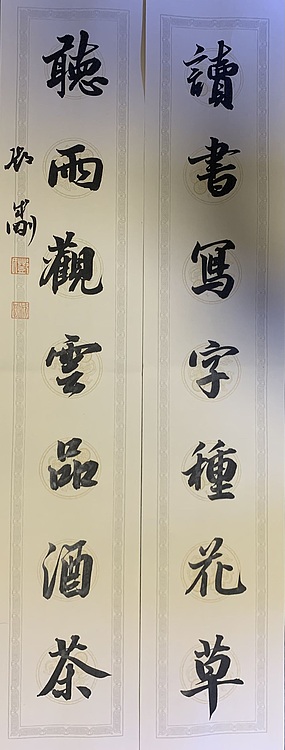 讀書寫字種花草
聽雨觀雲品酒茶